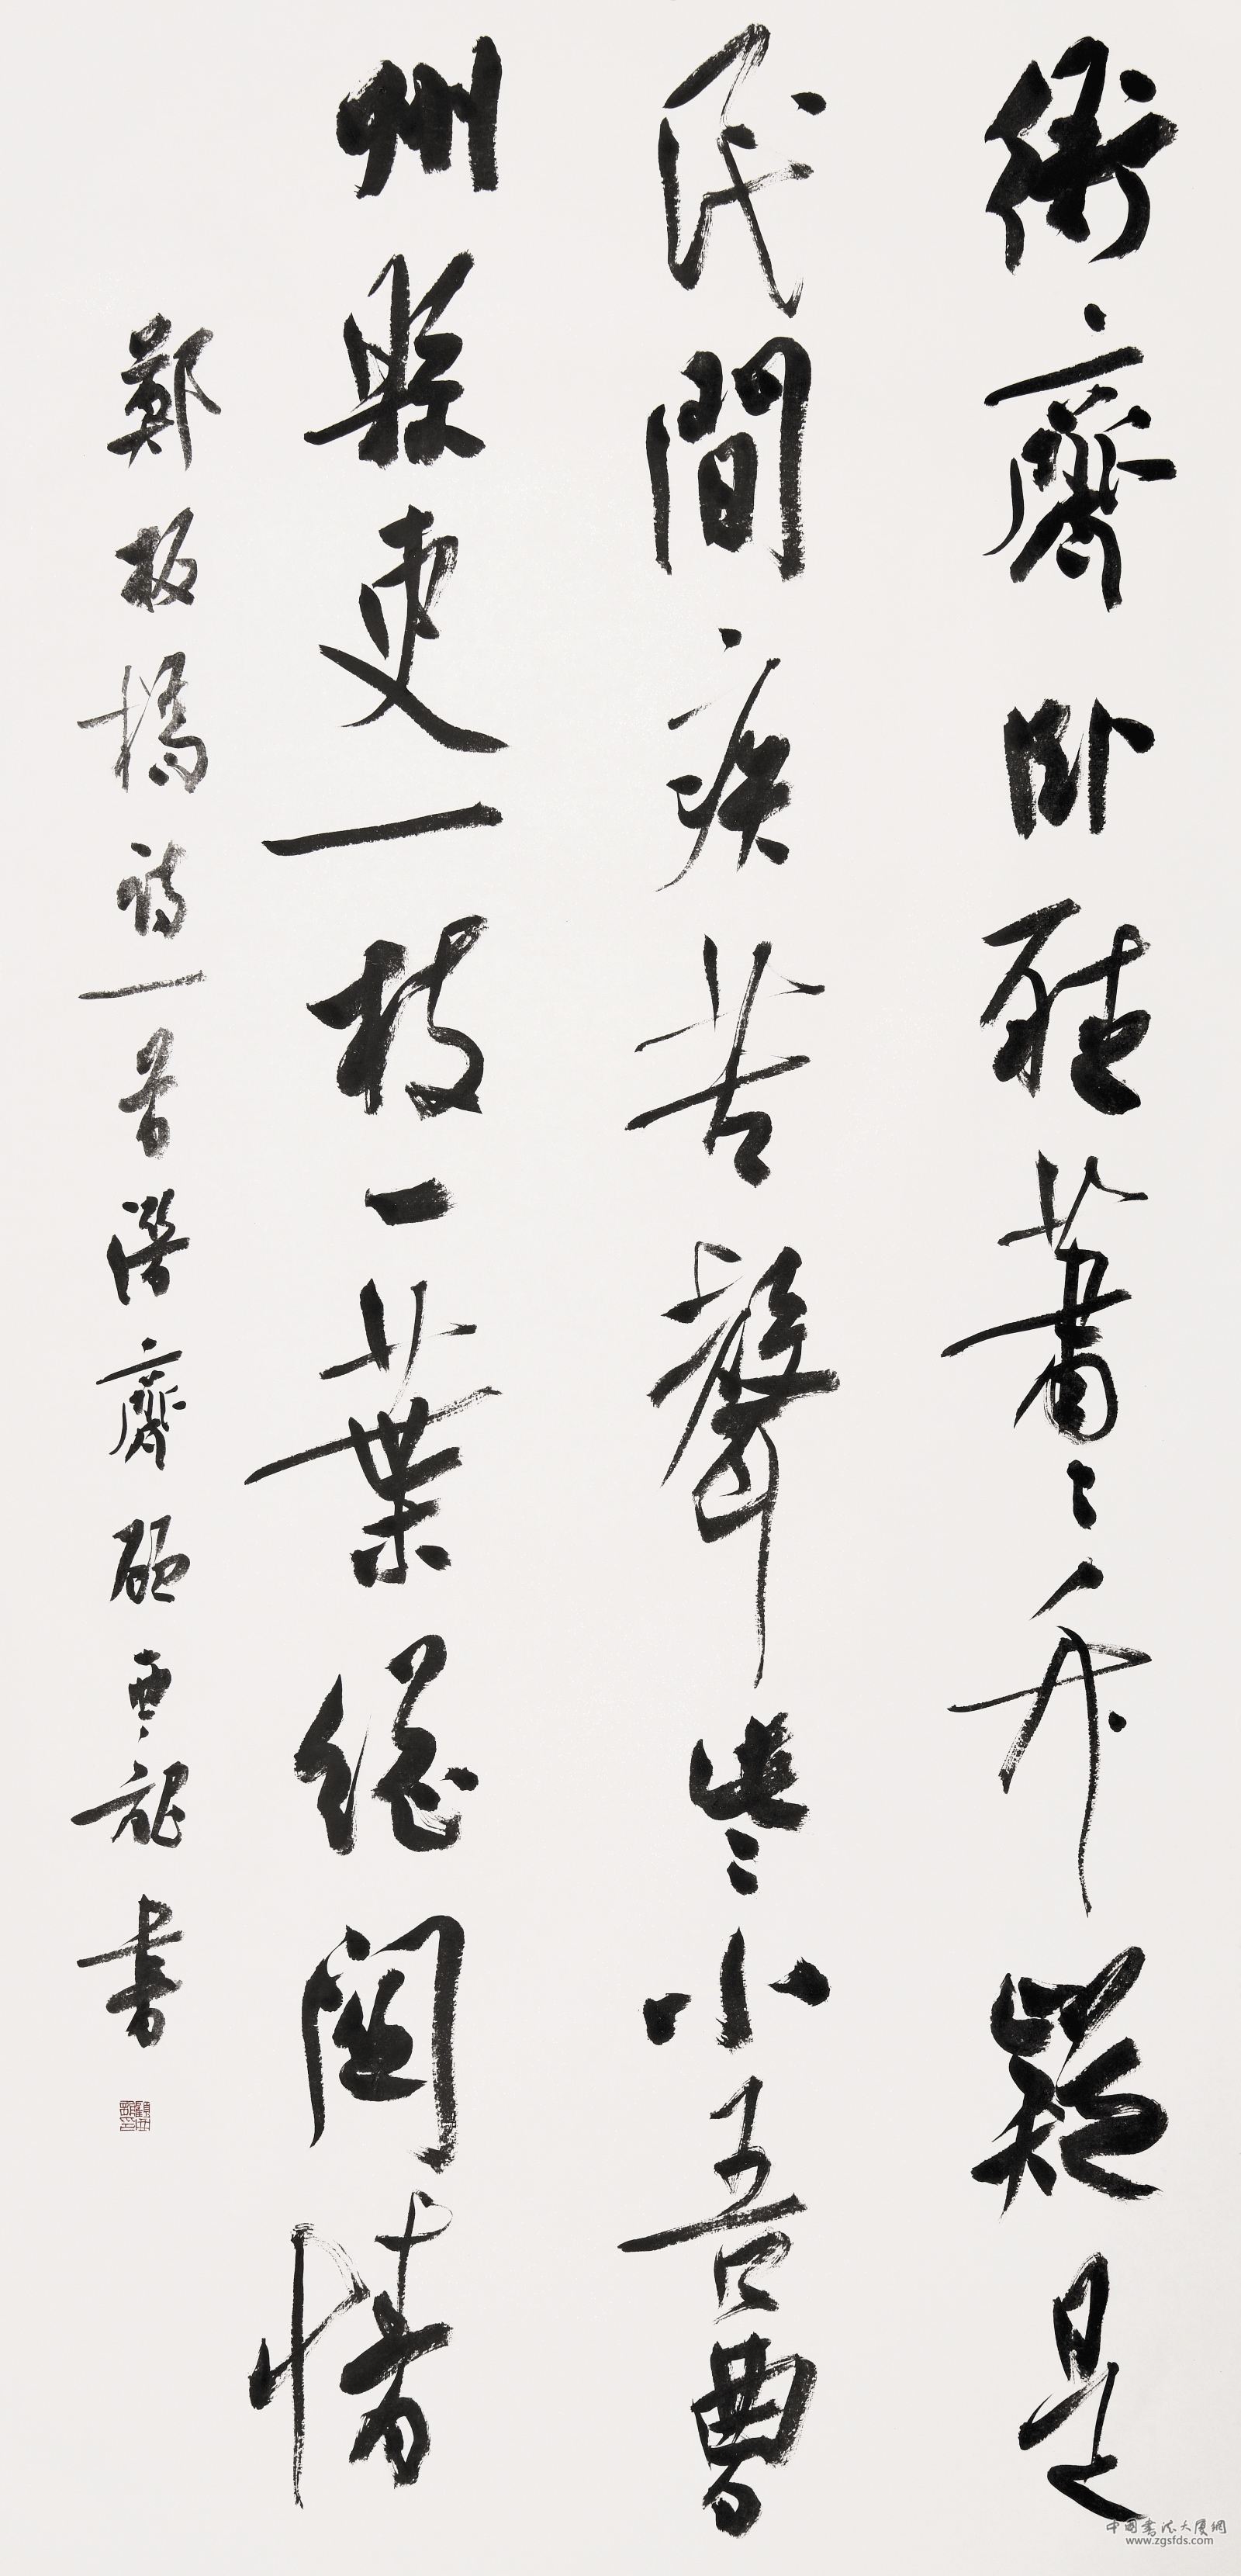 衙齋卧聽蕭〻竹疑是
民間疾苦聲些小吾曹
州縣吏一枝一葉總關情
鄭板橋詩一首潛齋顧亞龍書
中國書法大厦網
www.zgsfds.com